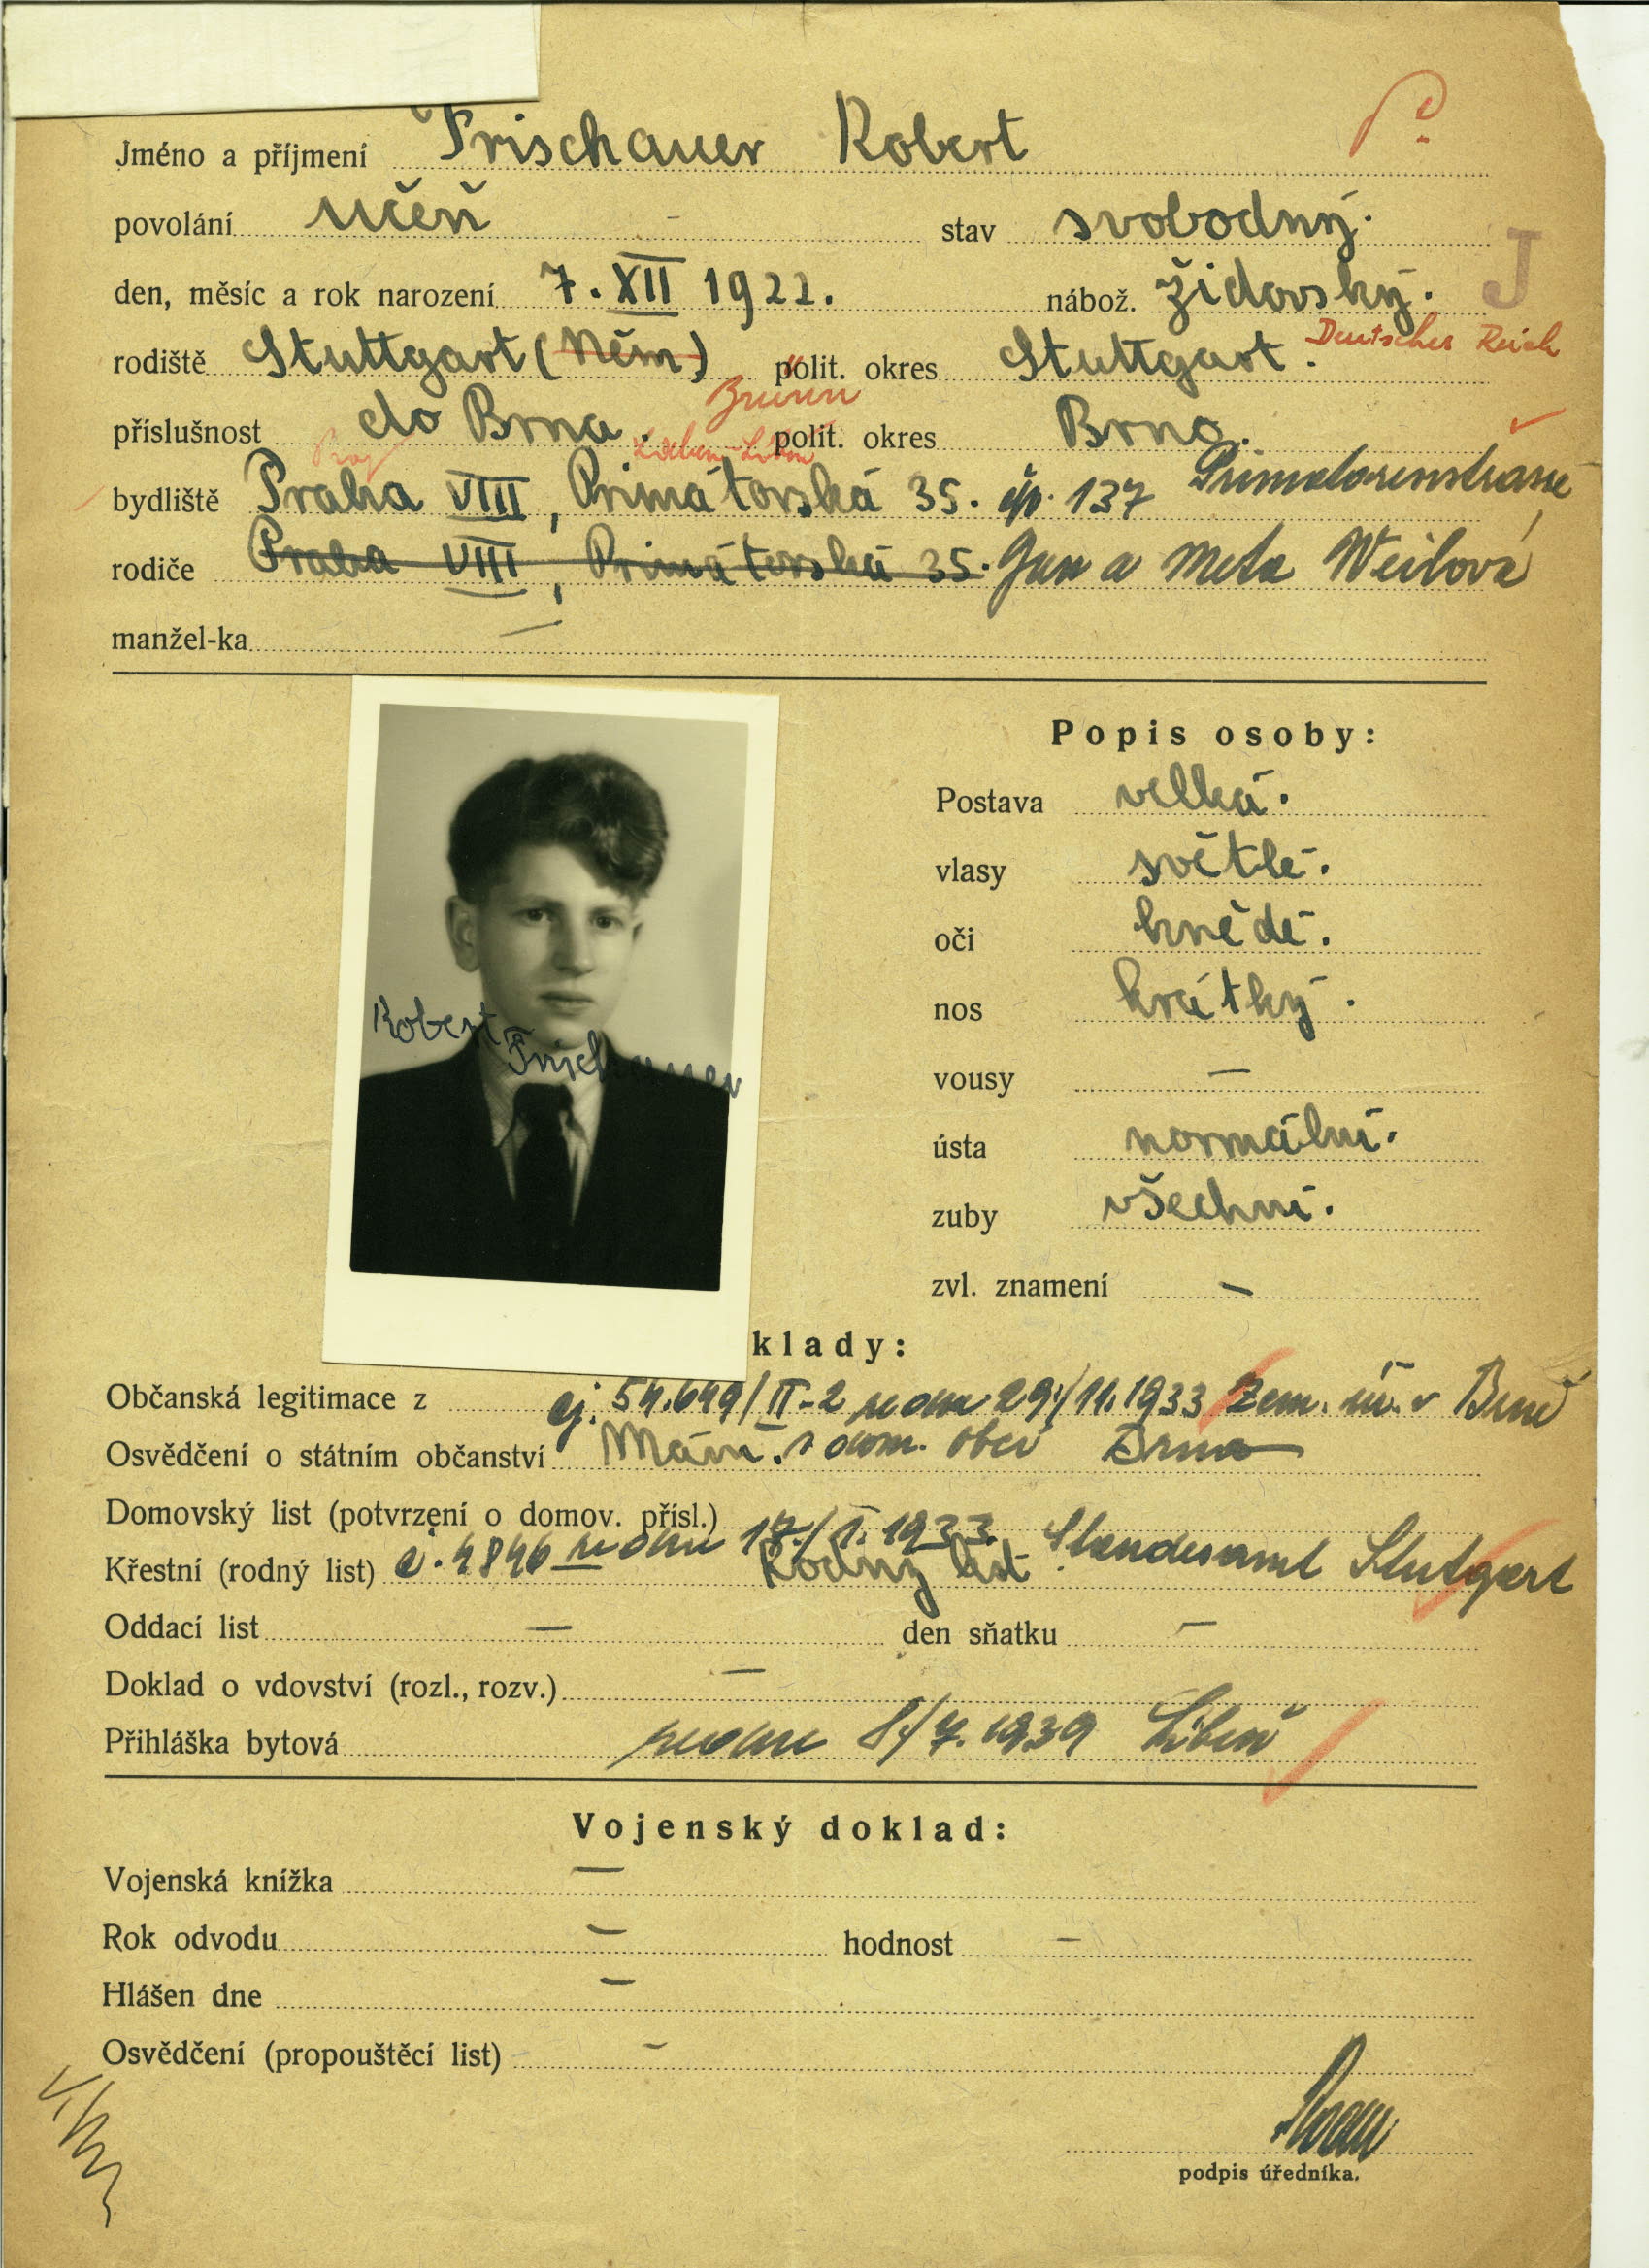 Jméno a příjmení Frischauer Robert
povolání učeň - stav svobodný.
den, měsíc a rok narození 7. XII 1922. nábož. židovský. J
rodiště Stuttgart (Něm) polit. okres Stuttgart. Deutsches Reich
příslušnost do Brna. Brünn polit. okres Brno.
Prag Lieben-Libeň
bydliště Praha VIII, Primátorská 35. čp. 137 Primatorenstrasse
rodiče Praha VIII, Primátorská 35. Jan a Meta Weilová
manžel-ka —
Popis osoby:
Postava velká.
vlasy světlé.
oči hnědé.
nos krátký.
vousy —
ústa normální.
zuby všechni.
zvl. znamení —
Robert
Frischauer
klady:
Občanská legitimace z čj. 54.649/II-2 ze dne 29/11.1933 Zem. úř. v Brně
Osvědčení o státním občanství Mám. dom. obci Brna
Domovský list (potvrzení o domov. přísl.)
Křestní (rodný list) č. 4846 ze dne 17/I. 1933. Rodný list. Standesamt Stutgart
Oddací list — den sňatku —
Doklad o vdovství (rozl., rozv.) —
Přihláška bytová ze dne 8/7. 1939 Libeň
Vojenský doklad:
Vojenská knížka —
Rok odvodu — hodnost —
Hlášen dne —
Osvědčení (propouštěcí list) -
podpis úředníka.